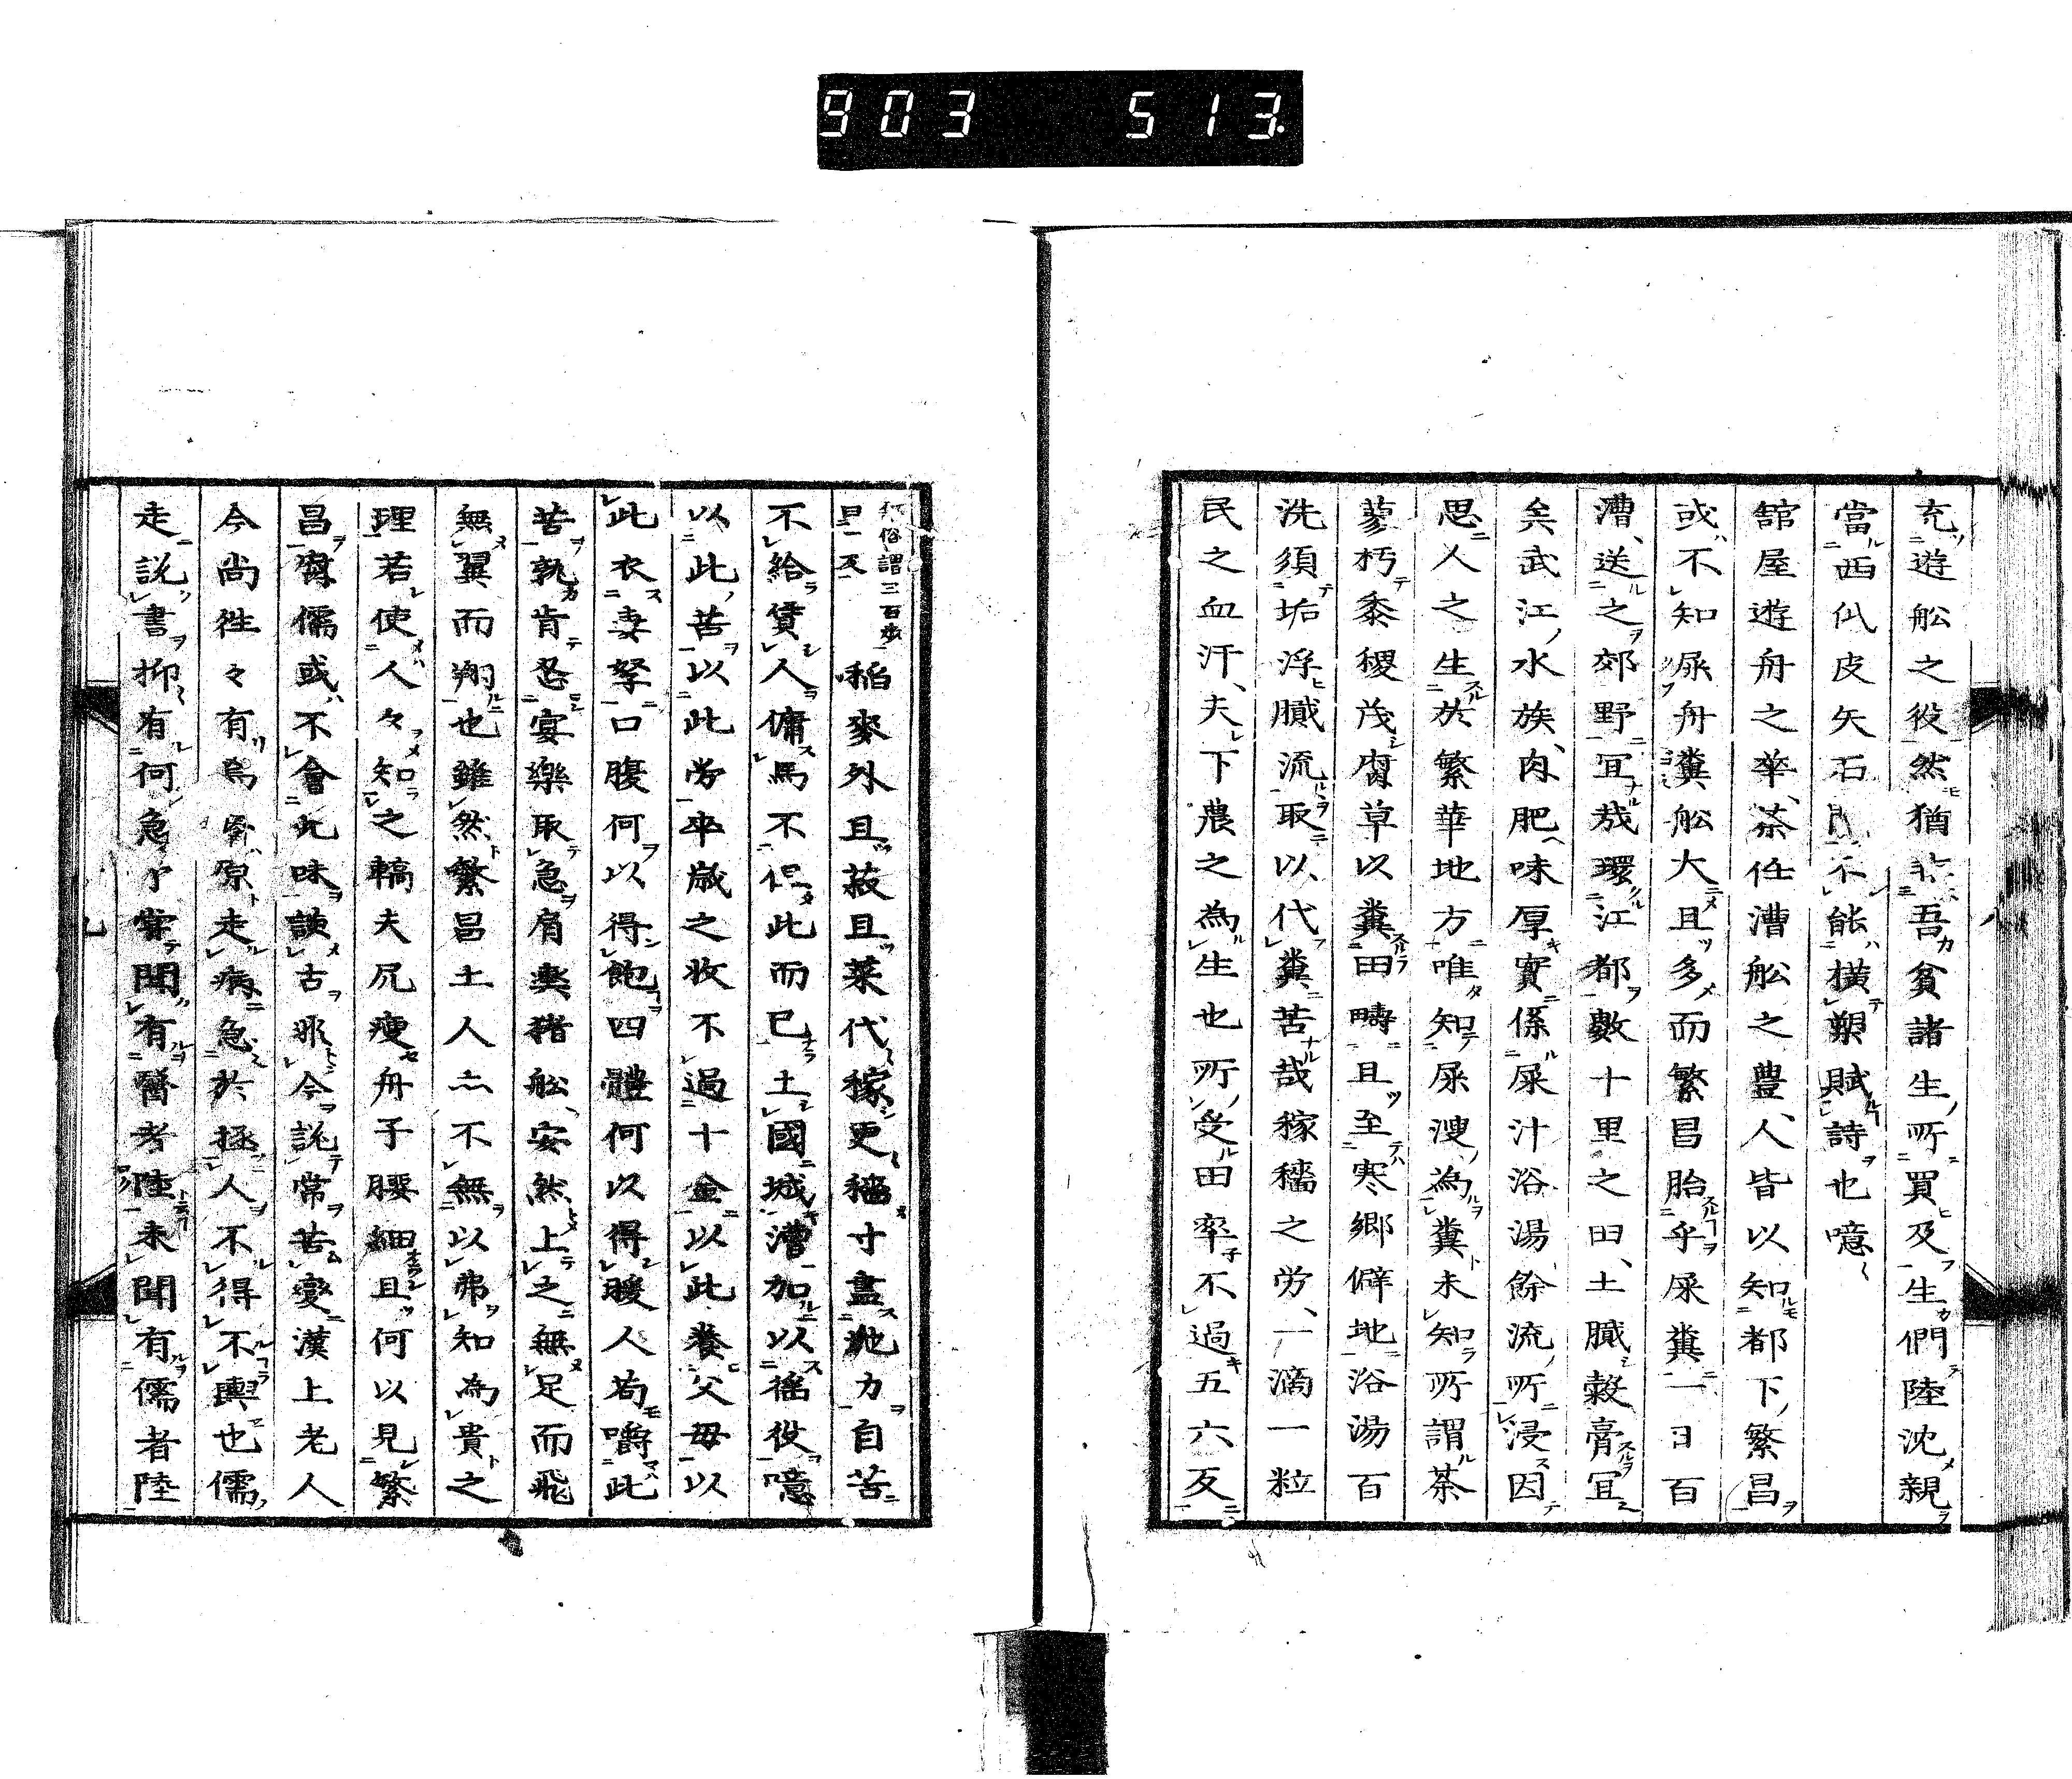 903 513
充遊舩之役然猶非吾貧諸生所買及生們陸沈親
當西仾皮矢石不能横槊賦詩也噫
館屋遊舟之舉茶任漕舩之豊人皆以知都下繁昌
或不知尿舟糞舩大且多而繁昌胎乎屎糞一日百
漕送之郊野宜哉環江都數十里之田土膩穀膏宜
矣武江水族肉肥味厚實係屎汁浴湯餘流所浸因
思人之生於繁華地方唯知屎溲為糞未知所謂荼
蓼朽黍稷茂腐草以糞田疇且至寒郷僻地浴湯百
洗須垢浮膩流取以代糞苦哉稼穡之労一滴一粒
民之血汗夫下農之為生也所受田率不過五六反
俗謂三百歩
曰一反
稲麥外且菽且菜代稼更穡寸盡地力自苦
不給賃人傭馬不但此而已土國城漕加以徭役噫
以此苦以此労卒歳之收不過十金以此養父母以
此衣妻孥口腹何以得飽四體何以得暖人苟嚼此
苦孰肯忍宴樂取急肩輿猪舩安然上之無足而飛
無翼而翔也雖然繁昌土人亦不無以弗知為貴之
理若使人々知之轎夫尻痩舟子腰細且何以見繁
昌腐儒或不會此味談古非今説常苦變漢上老人
今尚往々有焉醫原走病急於拯人不得不輿也儒
走説書抑有何急予甞聞有醫者陸未聞有儒者陸
八
九